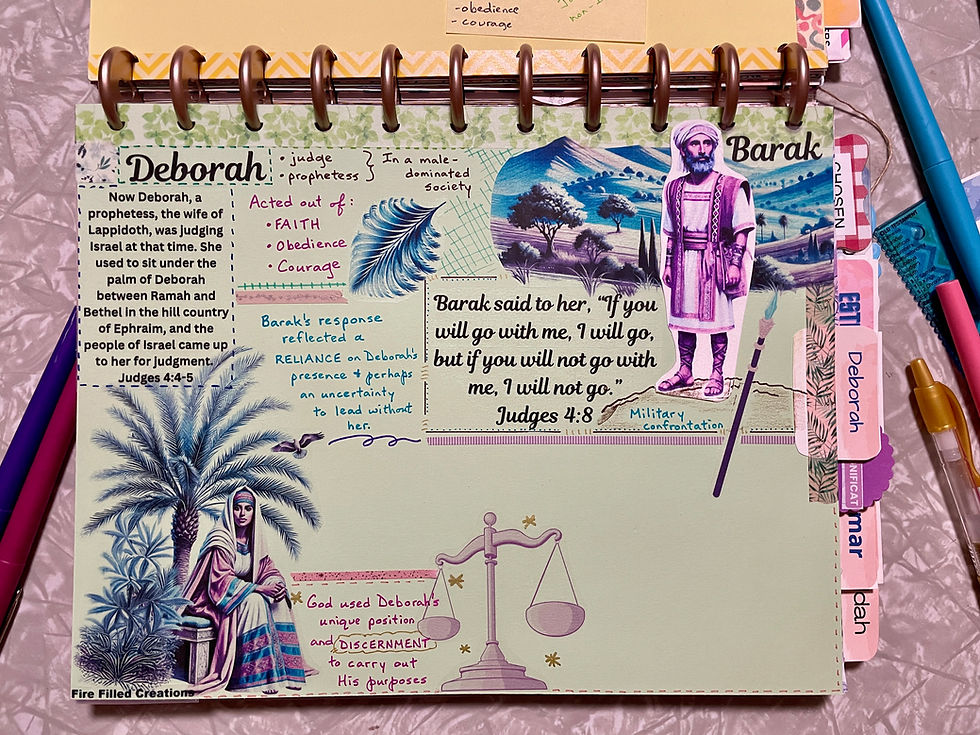 -obedience
- courage
Deborah
• judge
• prophetess
In a male-
dominated
society
Barak
Now Deborah, a
prophetess, the wife of
Lappidoth, was judging
Israel at that time. She
used to sit under the
palm of Deborah
between Ramah and
Bethel in the hill country
of Ephraim, and the
people of Israel came up
to her for judgment.
Judges 4:4-5
Acted out of:
• FAITH
• Obedience
• Courage
Barak's response
reflected a
RELIANCE on Deborah's
presence + perhaps
an uncertainty
to lead without
her.
Barak said to her, “If you
will go with me, I will go,
but if you will not go with
me, I will not go.”
Judges 4:8
Military
confrontation
God used Deborah's
unique position
and DISCERNMENT
to carry out
His purposes
Fire Filled Creations
CHOSEN
Deborah
NIFICAT
mar
dah